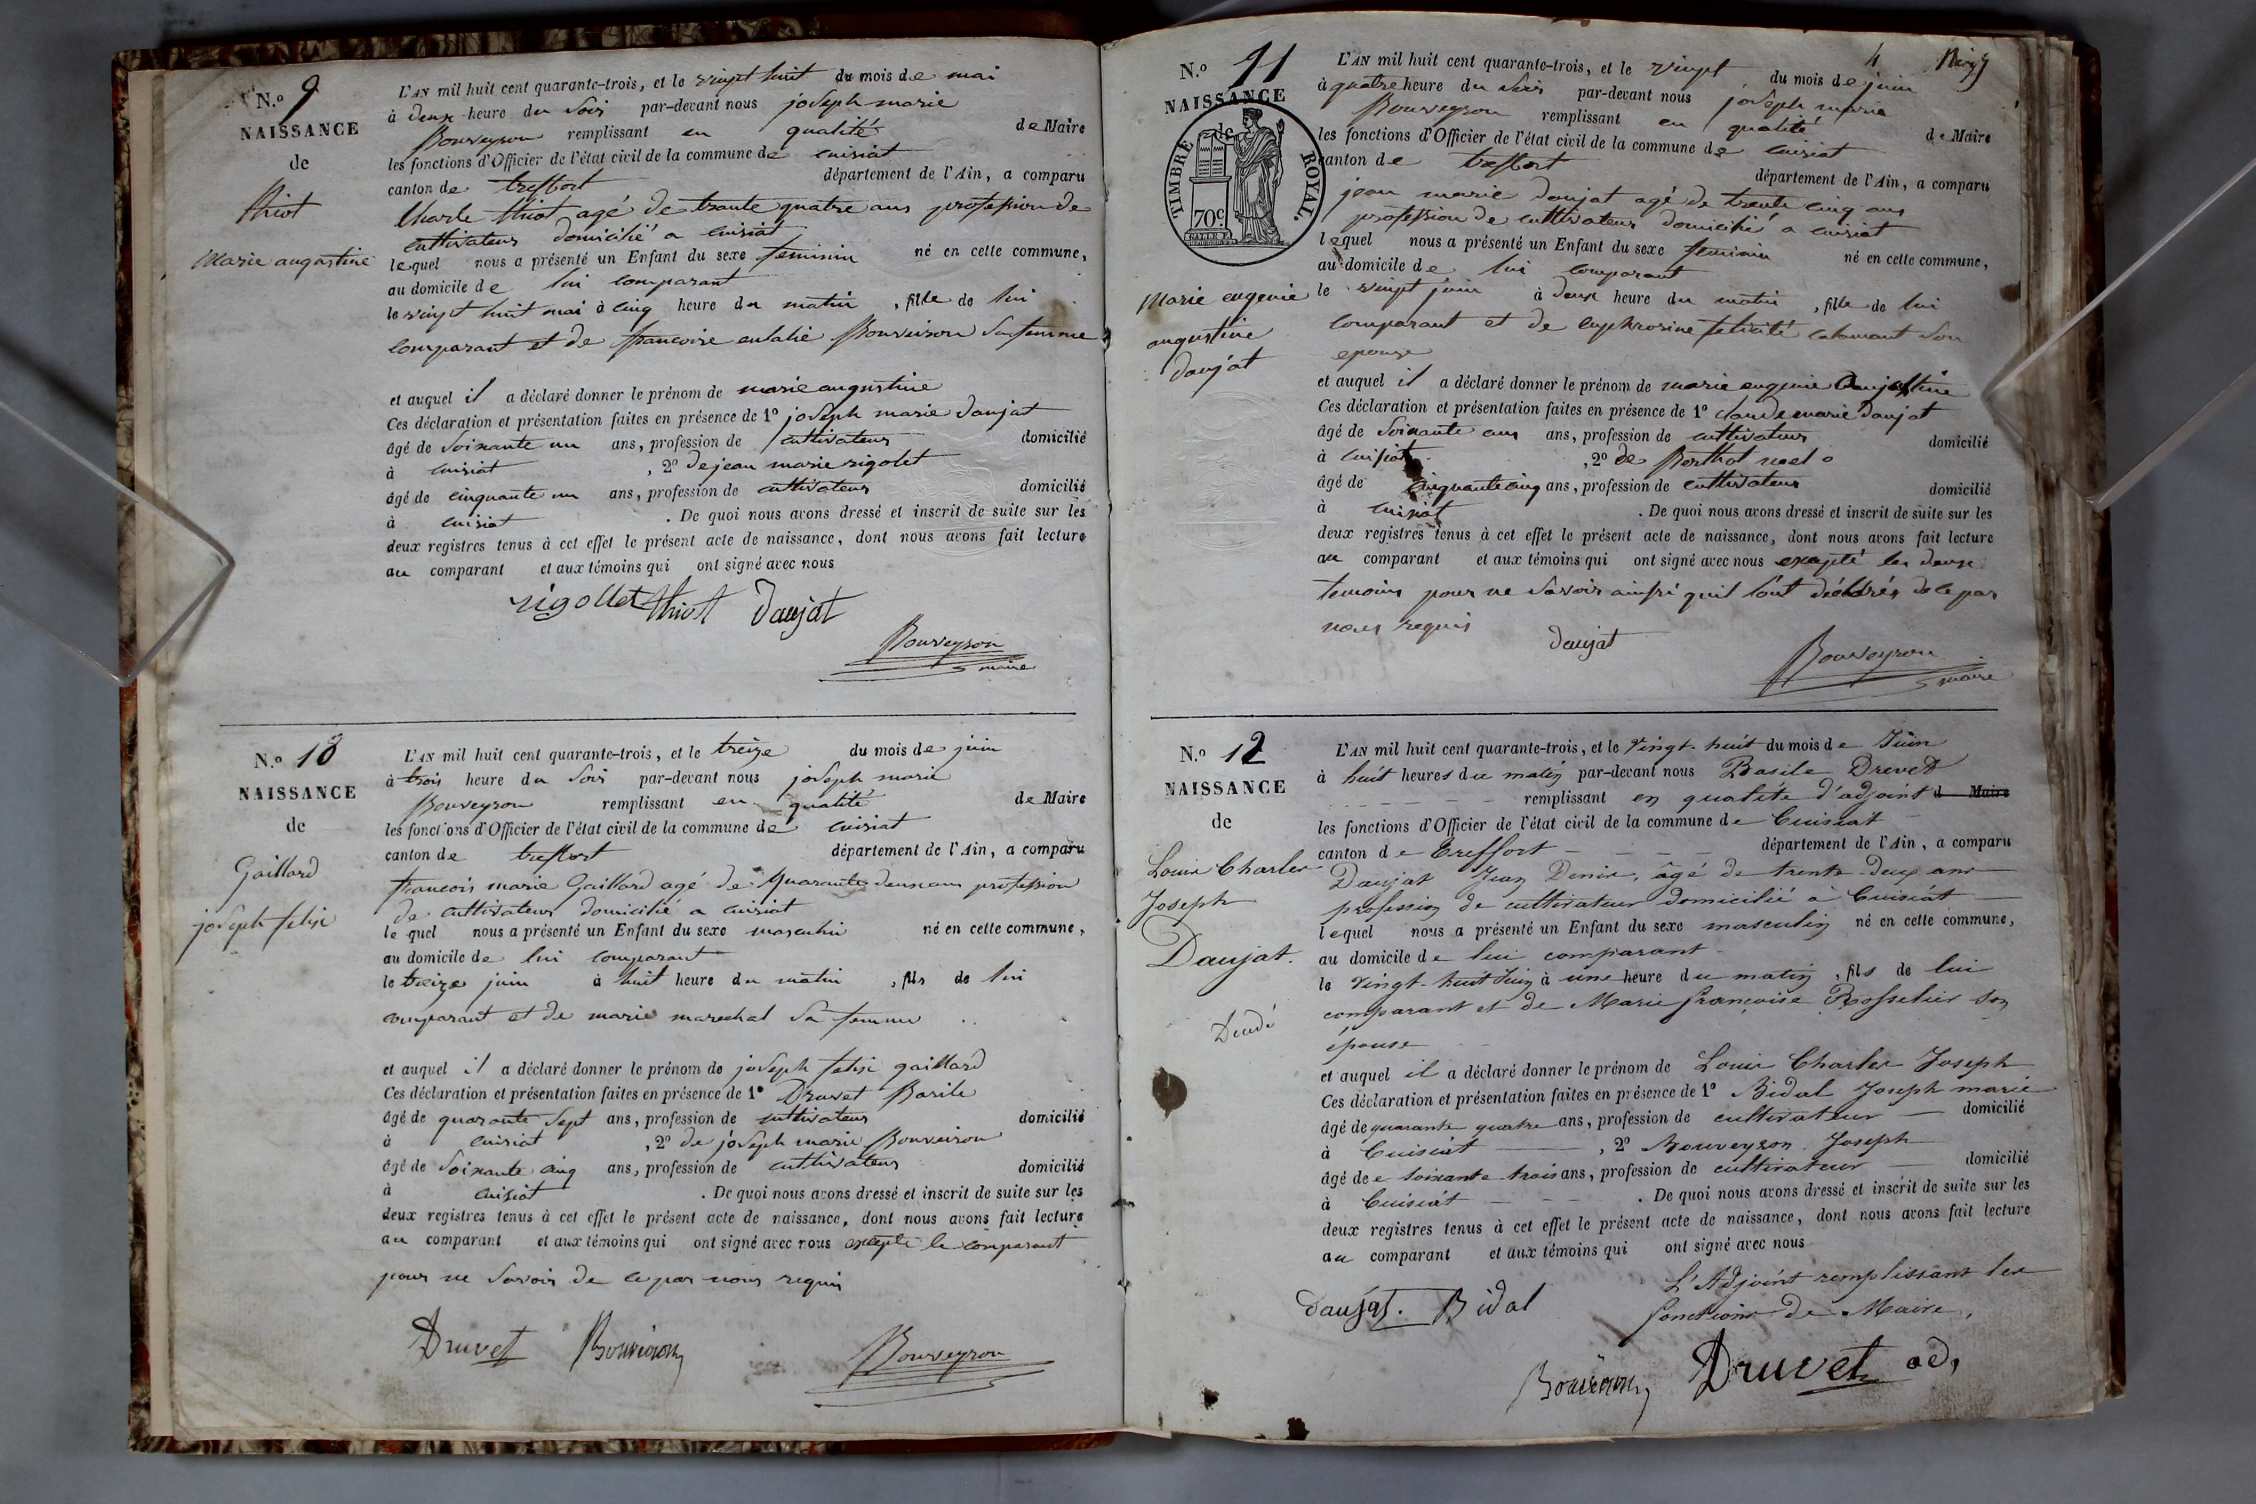 N.o 9
NAISSANCE
de
thiot
Marie augustine
L'AN mil huit cent quarante-trois, et le vingt huit du mois de mai
à deux heure du soir par-devant nous joseph marie
Bouveyron remplissant en qualité de Maire
les fonctions d'Officier de l'état civil de la commune de cuisiat
canton de treffort département de l'Ain, a comparu
Charle thiot agé de trante quatre ans profession de
cultivateur domicilié a cuisiat
lequel nous a présenté un Enfant du sexe feminin né en cette commune,
au domicile de lui comparant
le vingt huit mai à cinq heure du matin, fille de lui
comparant et de francoise eulalie Bouveiron sa femme
et auquel il a déclaré donner le prénom de marie augustine
Ces déclaration et présentation faites en présence de 1o joseph marie daujat
âgé de soixante un ans, profession de cultivateur domicilié
à cuisiat, 2o de jean marie rigolet
âgé de cinquante un ans, profession de cultivateur domicilié
à cuisiat. De quoi nous avons dressé et inscrit de suite sur les
deux registres tenus à cet effet le présent acte de naissance, dont nous avons fait lecture
au comparant et aux témoins qui ont signé avec nous
rigollet thiot daujat
Bouveyron
maire
N.o 10
NAISSANCE
de
Gaillard
joseph felix
L'AN mil huit cent quarante-trois, et le treize du mois de juin
à trois heure du soir par-devant nous joseph marie
Bouveyron remplissant en qualité de Maire
les fonctions d'Officier de l'état civil de la commune de cuisiat
canton de treffort département de l'Ain, a comparu
francois marie Gaillard agé de quarante deux ans profession
de cultivateur domicilié a cuisiat
lequel nous a présenté un Enfant du sexe masculin né en cette commune,
au domicile de lui comparant
le treize juin à huit heure du matin, fils de lui
comparant et de marie marechal sa femme
et auquel il a déclaré donner le prénom de joseph felix gaillard
Ces déclaration et présentation faites en présence de 1o Druvet Basile
âgé de quarante sept ans, profession de cultivateur domicilié
à cuisiat, 2o de joseph marie Bouveiron
âgé de soixante cinq ans, profession de cultivateur domicilié
à cuisiat. De quoi nous avons dressé et inscrit de suite sur les
deux registres tenus à cet effet le présent acte de naissance, dont nous avons fait lecture
au comparant et aux témoins qui ont signé avec nous excepté le comparant
pour ne savoir de ce par nous requis
Druvet Bouveiron
Bouveyron
4
N.o 11
NAISSANCE
de
TIMBRE ROYAL
70c.
Marie eugenie
augustine
daujat
L'AN mil huit cent quarante-trois, et le vingt du mois de juin
à quatre heure du soir par-devant nous joseph marie
Bouveyron remplissant en qualité de Maire
les fonctions d'Officier de l'état civil de la commune de cuisiat
canton de treffort département de l'Ain, a comparu
jean marie daujat agé de trente cinq ans
profession de cultivateur domicilié a cuisiat
lequel nous a présenté un Enfant du sexe feminin né en cette commune,
au domicile de lui comparant
le vingt juin à deux heure du matin, fille de lui
comparant et de euphrosine felicité son
epouse
et auquel il a déclaré donner le prénom de marie eugenie augustine
Ces déclaration et présentation faites en présence de 1o claude marie daujat
âgé de soixante ans ans, profession de cultivateur domicilié
à cuisiat, 2o de Berthot noel
âgé de cinquante cinq ans, profession de cultivateur domicilié
à cuisiat. De quoi nous avons dressé et inscrit de suite sur les
deux registres tenus à cet effet le présent acte de naissance, dont nous avons fait lecture
au comparant et aux témoins qui ont signé avec nous excepté les deux
temoins pour ne savoir ainsi quil lont déclarés de ce par
nous requis
daujat
Bouveyron
maire
N.o 12
NAISSANCE
de
Louis Charles
Joseph
Daujat.
Décédé
L'AN mil huit cent quarante-trois, et le Vingt-huit du mois de Juin
à huit heures du matin par-devant nous Basile Drevet
remplissant en qualité d'adjoint d Maire
les fonctions d'Officier de l'état civil de la commune de Cuisiat
canton de Treffort département de l'Ain, a comparu
Daujat Jean Denis, âgé de trente deux ans
profession de cultivateur domicilié à Cuisiat
lequel nous a présenté un Enfant du sexe masculin né en cette commune,
au domicile de lui comparant
le vingt-huit Juin à une heure du matin, fils de lui
comparant et de Marie françoise Rosselier son
épouse
et auquel il a déclaré donner le prénom de Louis Charles Joseph
Ces déclaration et présentation faites en présence de 1o Bidal Joseph marie
âgé de quarante quatre ans, profession de cultivateur domicilié
à Cuisiat, 2o Bouveyron Joseph
âgé de soixante trois ans, profession de cultivateur domicilié
à Cuisiat. De quoi nous avons dressé et inscrit de suite sur les
deux registres tenus à cet effet le présent acte de naissance, dont nous avons fait lecture
au comparant et aux témoins qui ont signé avec nous
L'Adjoint remplissant les
fonctions de Maire,
daujat. Bidal
Bouveiron Druvet ad,